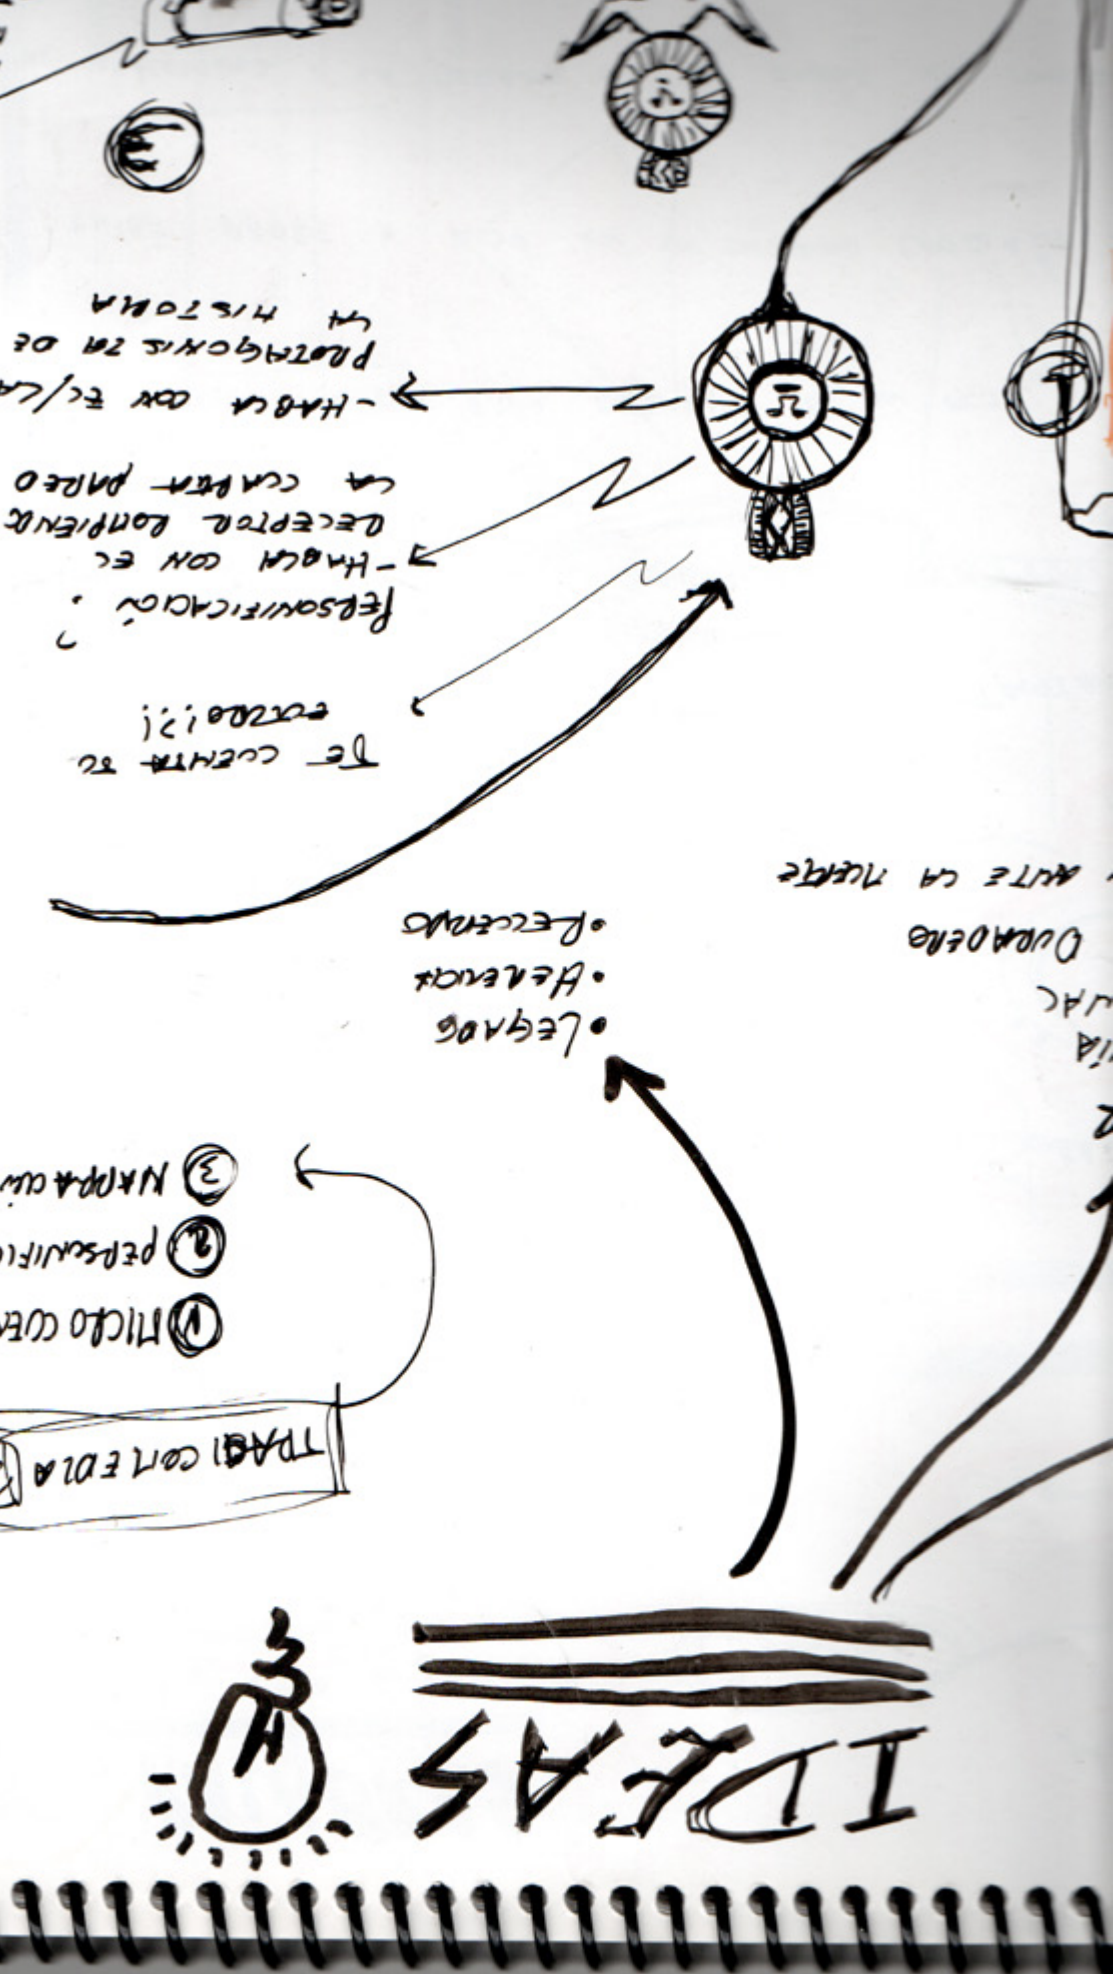 IDEAS
TRAGICOMEDIA
1 MICRO CUEN
2 PERSONIFIC
3 NARRACIÓN
•LEGADO
•HERENCIA
•RECUERDO
DURADERO
ANTE LA MUERTE
TE CUENTA SU
PERSONIFICACIÓN?
-HABLA CON EL
RECEPTOR ROMPIENDO
LA CUARTA PARED
-HABLA CON EL/LA
PROTAGONISTA DE
LA HISTORIA